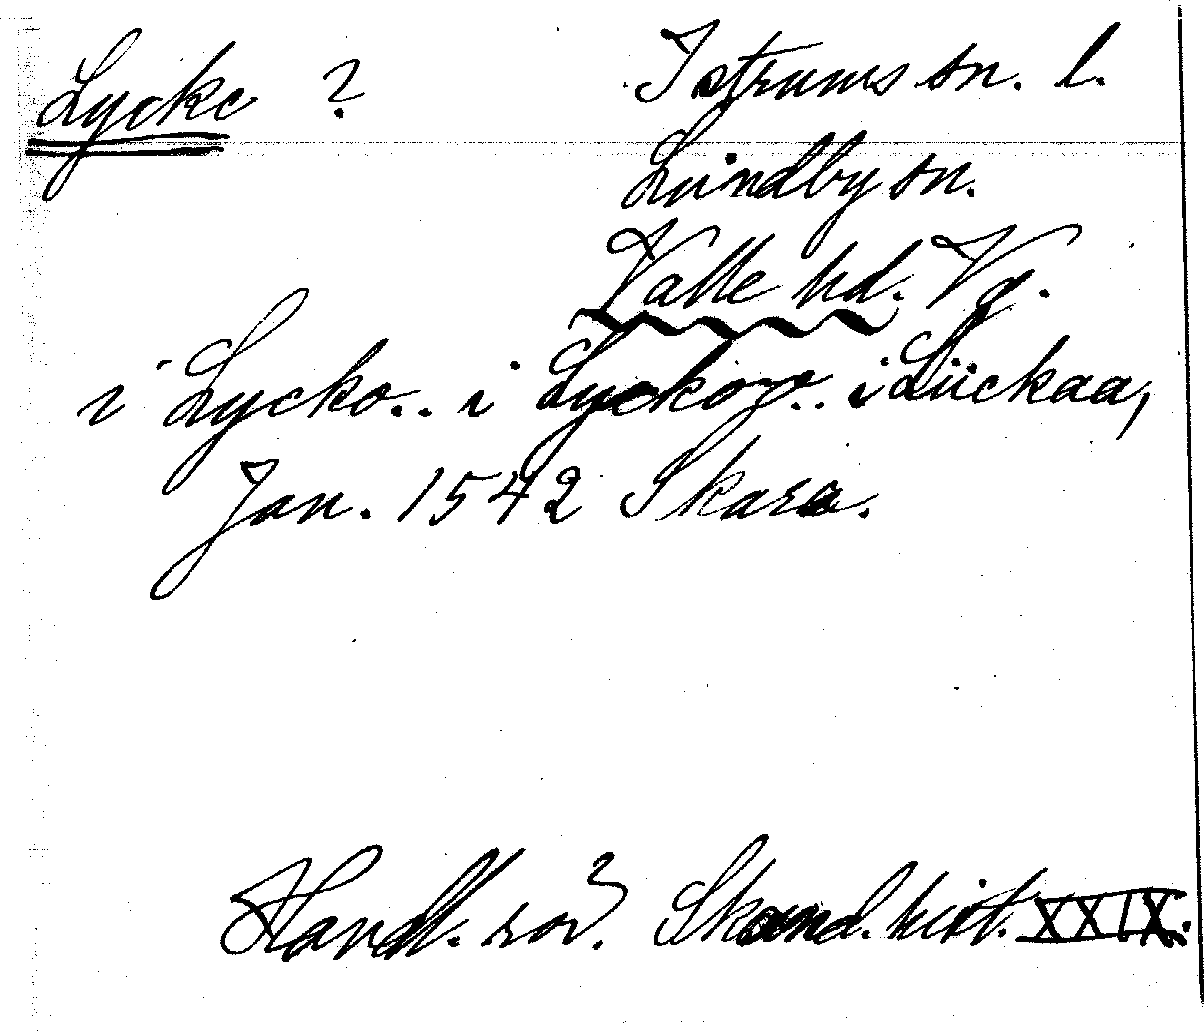 Lycke ? Istrums sn. l.
Lundby sn.
Valle hd. Vg.
i Lycko.. i Lyckoz.. i Lückaa,
Jan. 1542 Skara.
Handl. rör. Skand. hist. XXIX.